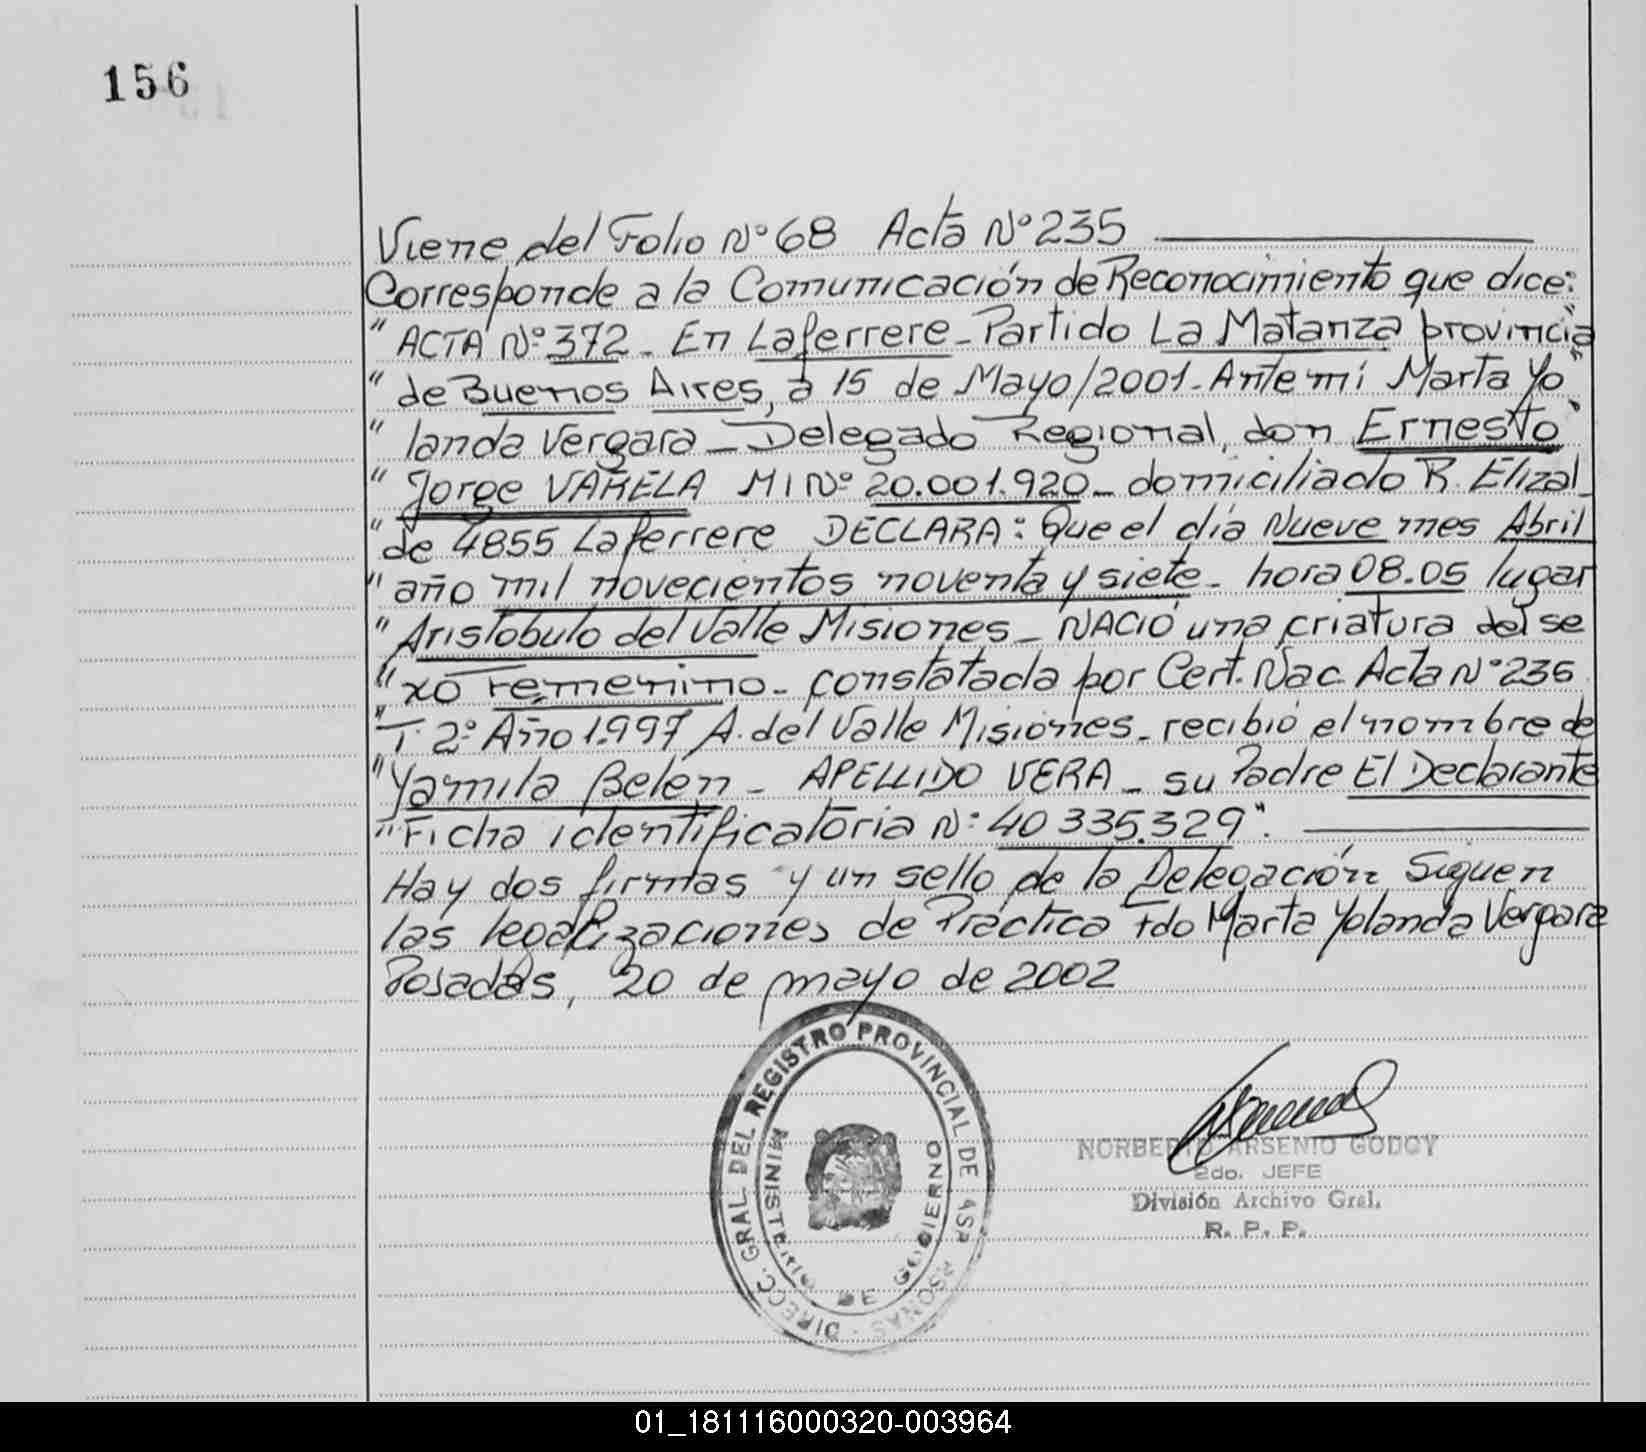 156
Viene del Folio Nº 68 Acta Nº 235
Corresponde a la Comunicación de Reconocimiento que dice:
" ACTA Nº 372 - En Laferrere - Partido La Matanza provincia "
" de Buenos Aires, a 15 de Mayo/2001 - Ante mi Marta Yo "
" landa Vergara - Delegado Regional, don Ernesto "
" Jorge VARELA MI Nº 20.001.920 - domiciliado R. Elizal
" de 4855 Laferrere DECLARA: Que el día Nueve mes Abril
" año mil novecientos noventa y siete - hora 08.05 lugar
" Aristobulo del Valle Misiones - NACIÓ una criatura del se
" xo Femenino - constatada por Cert. Nac. Acta Nº 235
" T. 2º Año 1997 A. del Valle Misiones - recibió el nombre de
" Yamila Belen - APELLIDO VERA - su Padre El Declarante
" Ficha identificatoria Nº 40 335.329".
Hay dos firmas y un sello de la Delegación Siguen
las legalizaciones de Práctica Fdo Marta Yolanda Vergara
Posadas, 20 de mayo de 2002
DIRECC. GRAL. DEL REGISTRO PROVINCIAL DE
MINISTERIO DE GOBIERNO
NORBERTO ARSENIO GODOY
2do. JEFE
División Archivo Gral.
R. P. P.
01_181116000320-003964